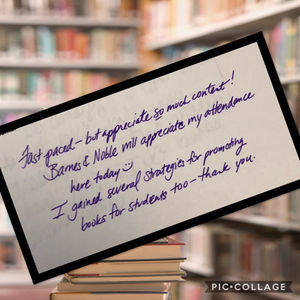 Fast-paced - but appreciate so much content!
Barnes & Noble will appreciate my attendance
here today ☺
I gained several strategies for promoting
books for students too - thank you.
PIC•COLLAGE